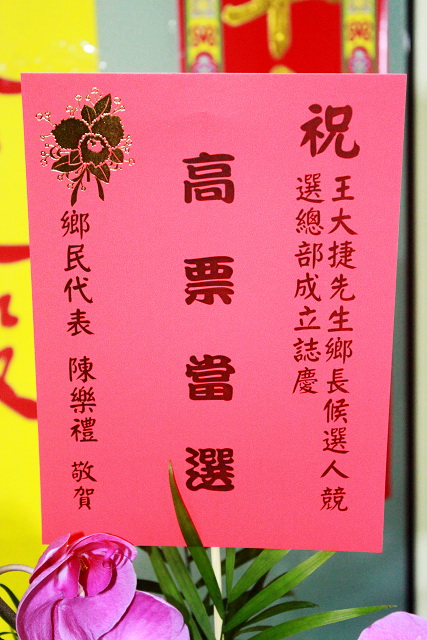 祝
王大捷先生鄉長候選人競
選總部成立誌慶
高票當選
鄉民代表 陳樂禮 敬賀